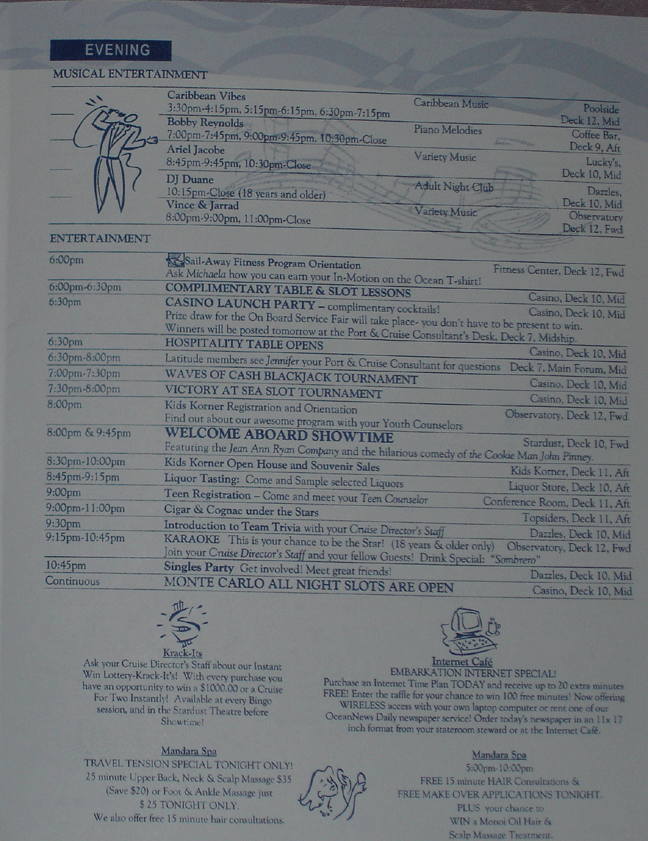 EVENING
MUSICAL ENTERTAINMENT
Caribbean Vibes
3:30pm-4:15pm, 5:15pm-6:15pm, 6:30pm-7:15pm Caribbean Music Poolside
Deck 12, Mid
Bobby Reynolds
7:00pm-7:45pm, 9:00pm-9:45pm, 10:30pm-Close Piano Melodies Coffee Bar,
Deck 9, Aft
Ariel Jacobe
8:45pm-9:45pm, 10:30pm-Close Variety Music Lucky's,
Deck 10, Mid
DJ Duane
10:15pm-Close (18 years and older) Adult Night Club Dazzles,
Deck 10, Mid
Vince & Jarrad
8:00pm-9:00pm, 11:00pm-Close Variety Music Observatory
Deck 12, Fwd
ENTERTAINMENT
6:00pm Sail-Away Fitness Program Orientation Fitness Center, Deck 12, Fwd
Ask Michaela how you can earn your In-Motion on the Ocean T-shirt!
6:00pm-6:30pm COMPLIMENTARY TABLE & SLOT LESSONS Casino, Deck 10, Mid
6:30pm CASINO LAUNCH PARTY – complimentary cocktails! Casino, Deck 10, Mid
Prize draw for the On Board Service Fair will take place- you don't have to be present to win.
Winners will be posted tomorrow at the Port & Cruise Consultant's Desk, Deck 7, Midship.
6:30pm HOSPITALITY TABLE OPENS Casino, Deck 10, Mid
6:30pm-8:00pm Latitude members see Jennifer your Port & Cruise Consultant for questions Deck 7, Main Forum, Mid
7:00pm-7:30pm WAVES OF CASH BLACKJACK TOURNAMENT Casino, Deck 10, Mid
7:30pm-8:00pm VICTORY AT SEA SLOT TOURNAMENT Casino, Deck 10, Mid
8:00pm Kids Korner Registration and Orientation Observatory, Deck 12, Fwd
Find out about our awesome program with your Youth Counselors
8:00pm & 9:45pm WELCOME ABOARD SHOWTIME Stardust, Deck 10, Fwd
Featuring the Jean Ann Ryan Company and the hilarious comedy of the Cookie Man John Pinney.
8:30pm-10:00pm Kids Korner Open House and Souvenir Sales Kids Korner, Deck 11, Aft
8:45pm-9:15pm Liquor Tasting: Come and Sample selected Liquors Liquor Store, Deck 10, Aft
9:00pm Teen Registration – Come and meet your Teen Counselor Conference Room, Deck 11, Aft
9:00pm-11:00pm Cigar & Cognac under the Stars Topsiders, Deck 11, Aft
9:30pm Introduction to Team Trivia with your Cruise Director's Staff Dazzles, Deck 10, Mid
9:15pm-10:45pm KARAOKE This is your chance to be the Star! (18 years & older only) Observatory, Deck 12, Fwd
Join your Cruise Director's Staff and your fellow Guests! Drink Special: "Sombrero"
10:45pm Singles Party Get involved! Meet great friends! Dazzles, Deck 10, Mid
Continuous MONTE CARLO ALL NIGHT SLOTS ARE OPEN Casino, Deck 10, Mid
Krack-It's
Ask your Cruise Director's Staff about our Instant
Win Lottery-Krack-It's! With every purchase you
have an opportunity to win a $1000.00 or a Cruise
For Two Instantly! Available at every Bingo
session, and in the Stardust Theatre before
Showtime!
Internet Café
EMBARKATION INTERNET SPECIAL!
Purchase an Internet Time Plan TODAY and receive up to 20 extra minutes
FREE! Enter the raffle for your chance to win 100 free minutes! Now offering
WIRELESS access with your own laptop computer or rent one of our
OceanNews Daily newspaper service! Order today's newspaper in an 11x 17
inch format from your stateroom steward or at the Internet Café.
Mandara Spa
TRAVEL TENSION SPECIAL TONIGHT ONLY!
25 minute Upper Back, Neck & Scalp Massage $35
(Save $20) or Foot & Ankle Massage just
$ 25 TONIGHT ONLY.
We also offer free 15 minute hair consultations.
Mandara Spa
5:00pm-10:00pm
FREE 15 minute HAIR Consultations &
FREE MAKE OVER APPLICATIONS TONIGHT.
PLUS your chance to
WIN a Monoi Oil Hair &
Scalp Massage Treatment.